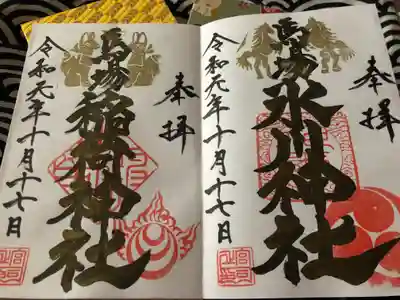 奉拝
馬場氷川神社
令和元年十月十七日
奉拝
馬場稲荷神社
令和元年十月十七日